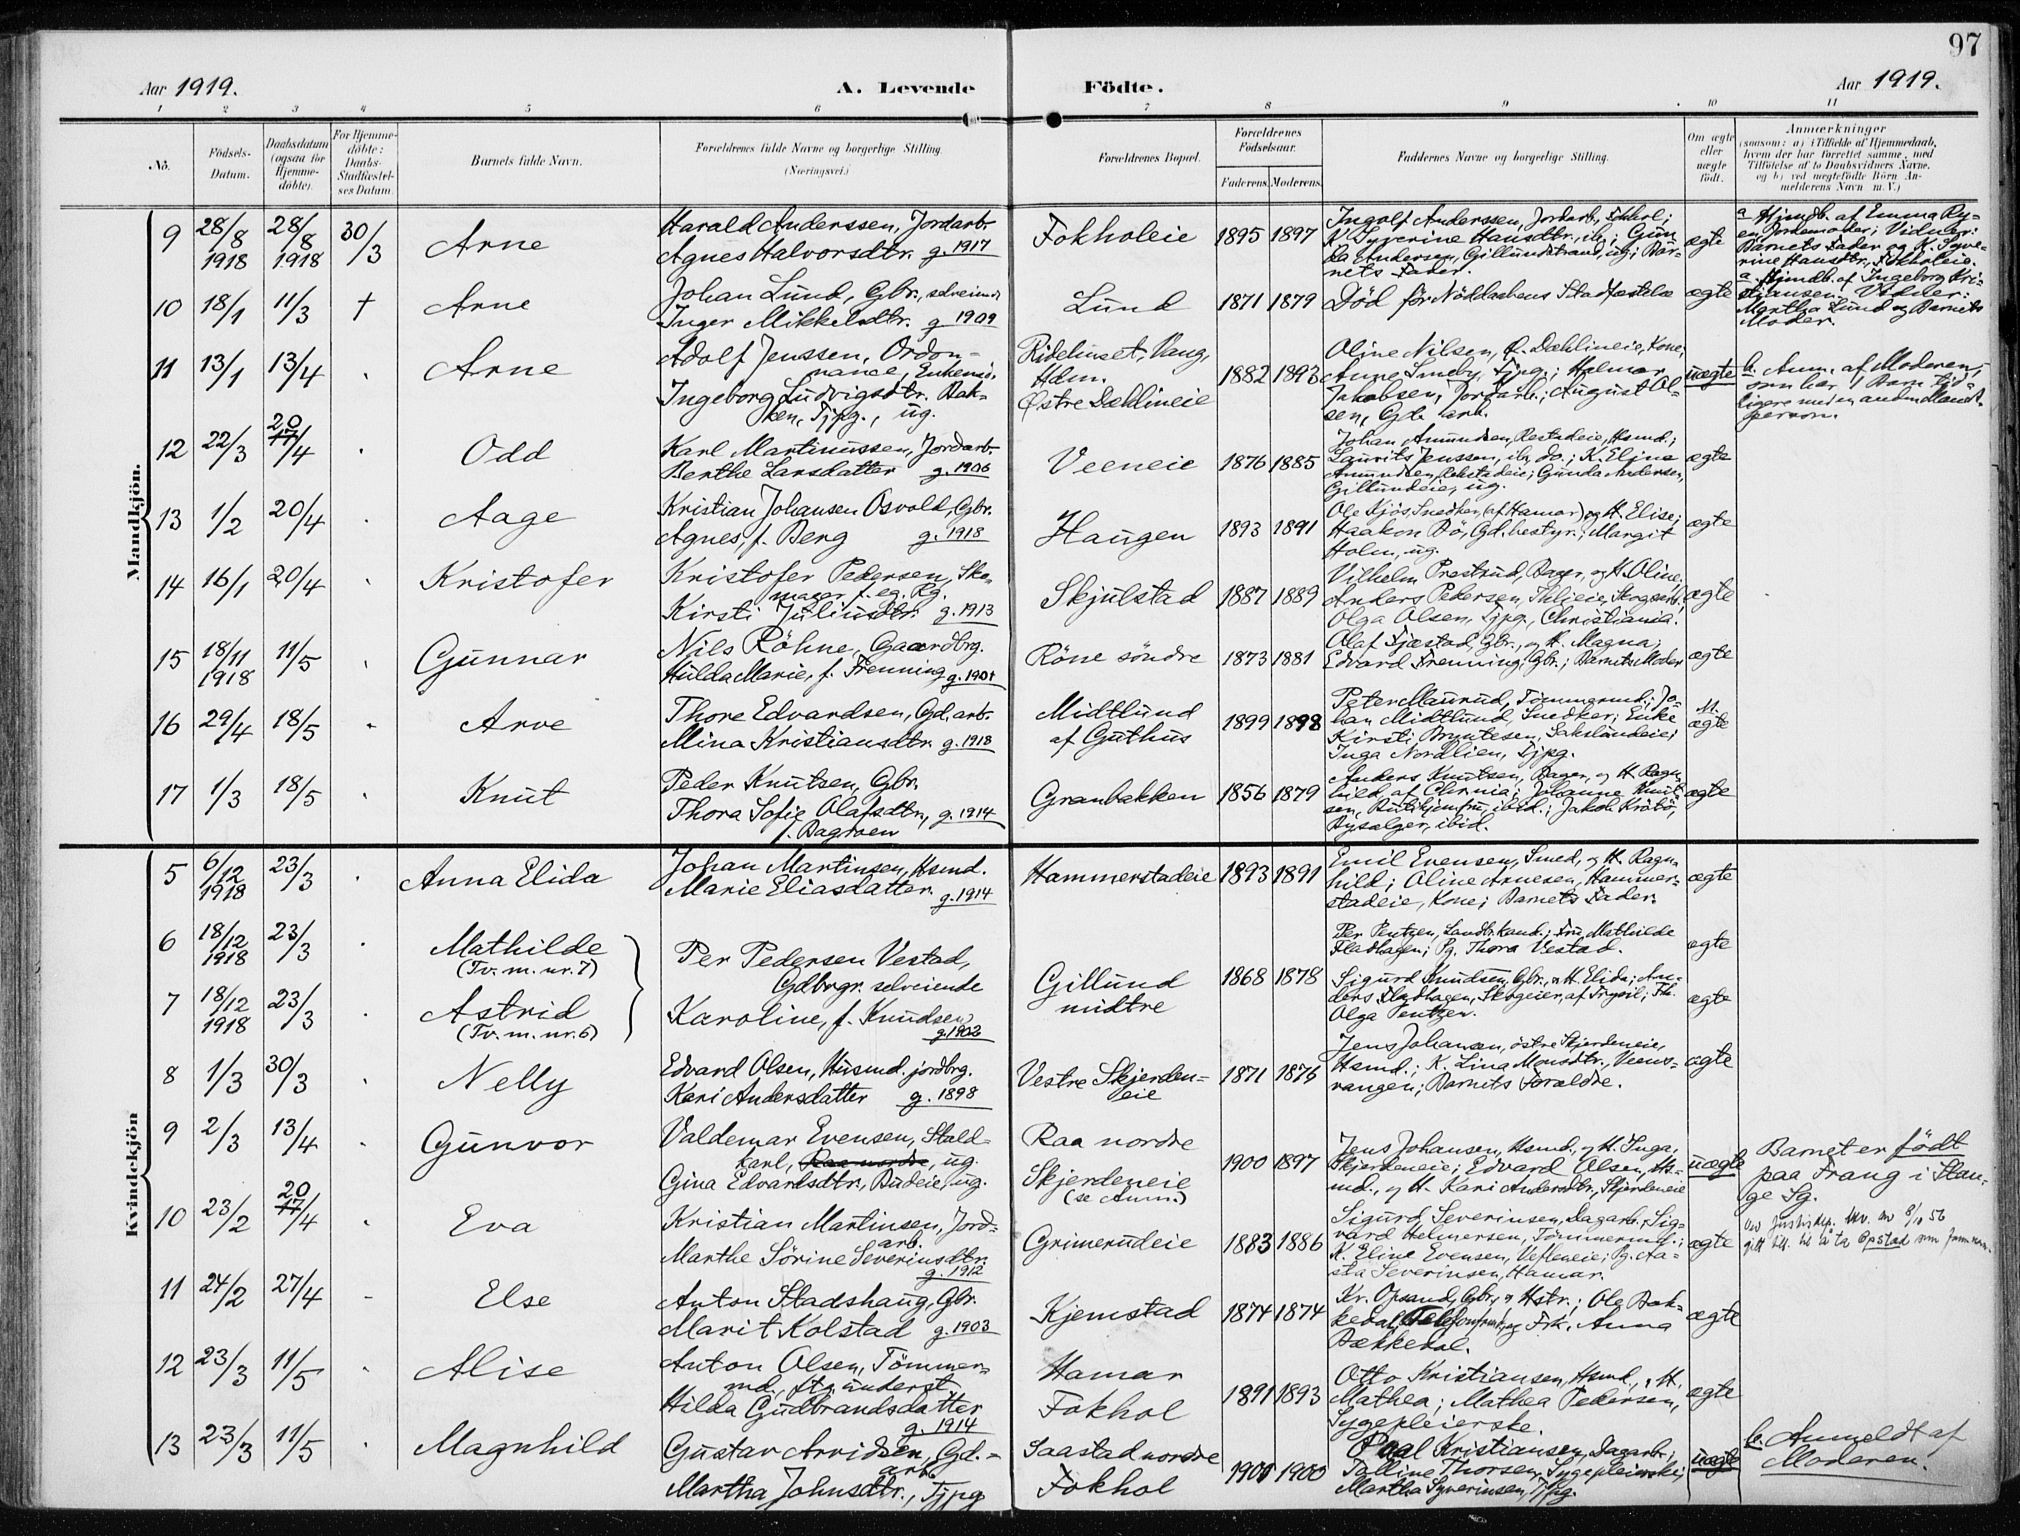 97
Aar 1919.
A. Levende Födte.
Aar 1919.
1 2 3 4 5 6 7 8 9 10 11
No.
Födsels-Datum.
Daabsdatum (ogsaa for Hjemme-döbte).
For Hjemme-döbte: Daabs-Stadfæstel-ses Datum.
Barnets fulde Navn.
Forældrenes fulde Navne og borgerlige Stilling.
(Næringsvei.)
Forældrenes Bopæl.
Forældrenes Födselsaar.
Faderens. Moderens.
Faddernes Navne og borgerlige Stilling.
Om ægte eller uægte födt.
Anmærkninger
(saasom: a) i Tilfælde af Hjemmedaab,
hvem der har forrettet samme, med
Tilföielse af to Daabsvidners Navne.
og b) ved uægtefödte Börn An-
melderens Navn m. V.)
Mandkjön.
9 28/8 1918 28/8 1918 30/3 Arne
Harald Anderssen, Jordarb.
Agnes Halvorsdtr. g. 1917
Fokholeie 1895 1897
Ingolf Anderssen, Jordarb., Fokhol;
K. Syverine Hansdtr., ib.; Gun
da Andersen, Gillundstrand, ug; Bar-
nets Fader.
ægte
a. Hjmdb. af Emma Ry-
en, Jordemoder; Vidner:
Barnets Fader og K. Syve-
rine Hansdtr., Fokholeie.
10 18/1 11/3 † Arne
Johan Lund, Gbr., selveiend
Inger Mikkelsdtr. g. 1909
Lund 1871 1879
Död för Nöddaabens Stadfæstelse
ægte
a. Hjmdb. af Ingeborg Kri-
stiansen. Vidner:
Martha Lund og Barnets
Moder.
11 13/1 13/4 Arne
Adolf Jenssen, Ordon-
nance, Enkemd.
Ingeborg Ludvigsdtr. Bak-
ken, Tjpg., ug.
Ridehuset, Vang,
Hdm.
Østre Dæhlineie
1882 1893
Oline Nilsen, Ø. Dæhlineie, Kone;
Anne Smeby, Tjpg.; Halmar
Jakobsen, Jordarb.; August Ol-
sen, Gd. arb.
uægte
b. Anm. af Moderen,
som har 1 Barn tid-
ligere med en anden Mands-
person.
12 22/3 20/4 Odd
Karl Martinussen, Jordarb.
Berthe Larsdatter g. 1906
Veeneie 1876 1885
Johan Amundsen, Restadeie, Hsmd.;
Laurits Jenssen, ib., do.; K. Eline
Amundsen, Rekstadeie; Gunda Andersen,
Gillundeie, ug.
ægte
13 1/2 20/4 Aage
Kristian Johansen Osvold, Gbr.
Agnes, f. Berg g. 1918
Haugen 1893 1891
Ole Sjös, Snedker, (af Hamar) og H. Elise;
Haakon Bö, Gd. bestyr.; Margit
Holm, ug.
ægte
14 16/1 20/4 Kristofer
Kristofer Pedersen, Sko
mager f. eg. Rg.
Kirsti Juliusdtr. g. 1913
Skjulstad 1887 1889
Vilhelm Prestrud, Bager, og H. Oline;
Anders Pedersen, Thlieie, Skogsarb.;
Olga Olsen, Tjpg., Christiania.
ægte
15 18/11 1918 11/5 Gunnar
Nils Röhne, Gaardbrg.
Hulda Marie, f. Frenning g. 1901
Röne söndre 1873 1881
Olaf Fjæstad, Gbr., og H. Magna;
Edvard Frenning, Gbr.; Barnets Moder
ægte
16 29/4 18/5 Arve
Thore Edvardsen, Gd. arb.
Mina Kristiansdtr. g. 1918
Midtlund
af Guthus
1899 1898
Peter Maurud, Tömmermd.; Jo-
han Midtlund, Snedker; Enke
Kirsti Bryntesen, Sakslundeie;
Inga Nordlien, Tjpg.
M. ægte
17 1/3 18/5 Knut
Peder Knutsen, Gbr.
Thora Sofie Olafsdtr., g. 1914
f. Bagroen
Granbakken 1856 1879
Anders Knutsen, Bager, og H. Ragn-
hild, af Chrnia; Johanne Knut-
sen, Butikjomfru, ibid.; Jakob Kräbö,
Bysælger, ibid.
ægte
Kvindekjön
5 6/12 1918 23/3 Anna Elida
Johan Martinsen, Hsmd.
Marie Eliasdatter. g. 1914
Hammerstadeie 1893 1891
Emil Evensen, Smed, og H. Ragn-
hild; Oline Arnesen, Hammer-
stadeie, Kone; Barnets Fader.
ægte
6 18/12 1918 23/3 Mathilde
(Tv. m. nr. 7)
7 18/12 1918 23/3 Astrid
(Tv. m. nr. 6)
Per Pedersen Vestad,
Gdbrgr. selveiende
Karoline, f. Knudsen
g. 1902
Gillund
midtre
1868 1878
Per Pentzen, Landb. kand.; Fru Mathilde
Fladhagen; Pg. Thora Vestad.
ægte
Sigurd Knudsen, Gbr., og H. Elida; An-
ders Fladhagen, Skogeier, af Trysil; Fh.
Olga Pentzen.
ægte
8 1/3 30/3 Nelly
Edvard Olsen, Husmd. jordbrg.
Kari Andersdatter g. 1898
Vestre Skjerden-
eie
1871 1876
Jens Johansen, östre Skjerdeneie,
Hsmd.; K. Lina Monsdtr., Veens-
vangen; Barnets Forældre.
ægte
9 2/3 13/4 Gunvor
Valdemar Evensen, Stald-
karl, Raa nordre, ug.
Gina Edvardsdtr., Budeie, ug.
Raa nordre
Skjerdeneie
(se Anm.)
1900 1897
Jens Johansen, Hsmd., og H. Inga,
Skjerdeneie; Edvard Olsen, Hs-
md., og H. Kari Andersdtr., Skjerdeneie
uægte
Barnet er födt
paa Frang i Stan-
ge Sg.
10 23/2 20/4 Eva
Kristian Martinsen, Jord-
arb.
Marthe Sörine Severinsdtr.
g. 1912
Grimerudeie 1883 1886
Sigurd Severinsen, Dagarb., Sig-
vard Helmersen, Tömmermd.;
K. Eline Evensen, Vefleneie; Pg. Aa-
sta Severinsen, Hamar.
ægte
Ved Justisdep. skv. av 8/10 56
gitt till. til å ta Opstad som famnavn.
11 24/2 27/4 Else
Anton Stadshaug, Gbr.
Marit Kolstad g. 1903
Kjemstad 1874 1874
Kr. Opsand, Gbr., og Hstr.; Ole Bæk-
kedal, og Frk. Anna
Bækkedal.
ægte
12 23/3 11/5 Alise
Anton Olsen, Tömmer-
md.
Hilda Gudbrandsdatter
g. 1914
Hamar
Fokhol
1891 1893
Otto Kristiansen, Hsmd., og H.
Mathea; Mathea Pedersen,
Sygepleierske.
ægte
13 23/3 11/5 Magnhild
Gustav Arvidsen, Gd.-
arb.
Martha Johnsdtr., Tjpg
Saastad nordre
Fokhol
1900 1900
Paal Kristiansen, Dagarb.;
Palline Thorsen, Sygepleierske;
Martha Syverinsen, Tjpg.
uægte
b. Anmeldt af
Moderen.